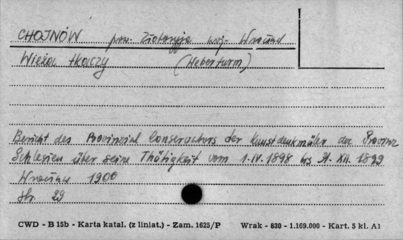 CHOJNÓW pow. Złotoryja woj. Wrocław
Wieża tkaczy (Weberturm)
Bericht des Provinzial Conservators der Kunstdenkmäler der Provinz
Schlesien über seine Thätigkeit vom 1.IV.1898 bis 31.XII.1899
Wrocław 1900
str. 29
CWD - B 15b - Karta katal. (z liniat.) - Zam. 1625/P Wrak - 830 - 1.169.000 - Kart. 5 kl. A1